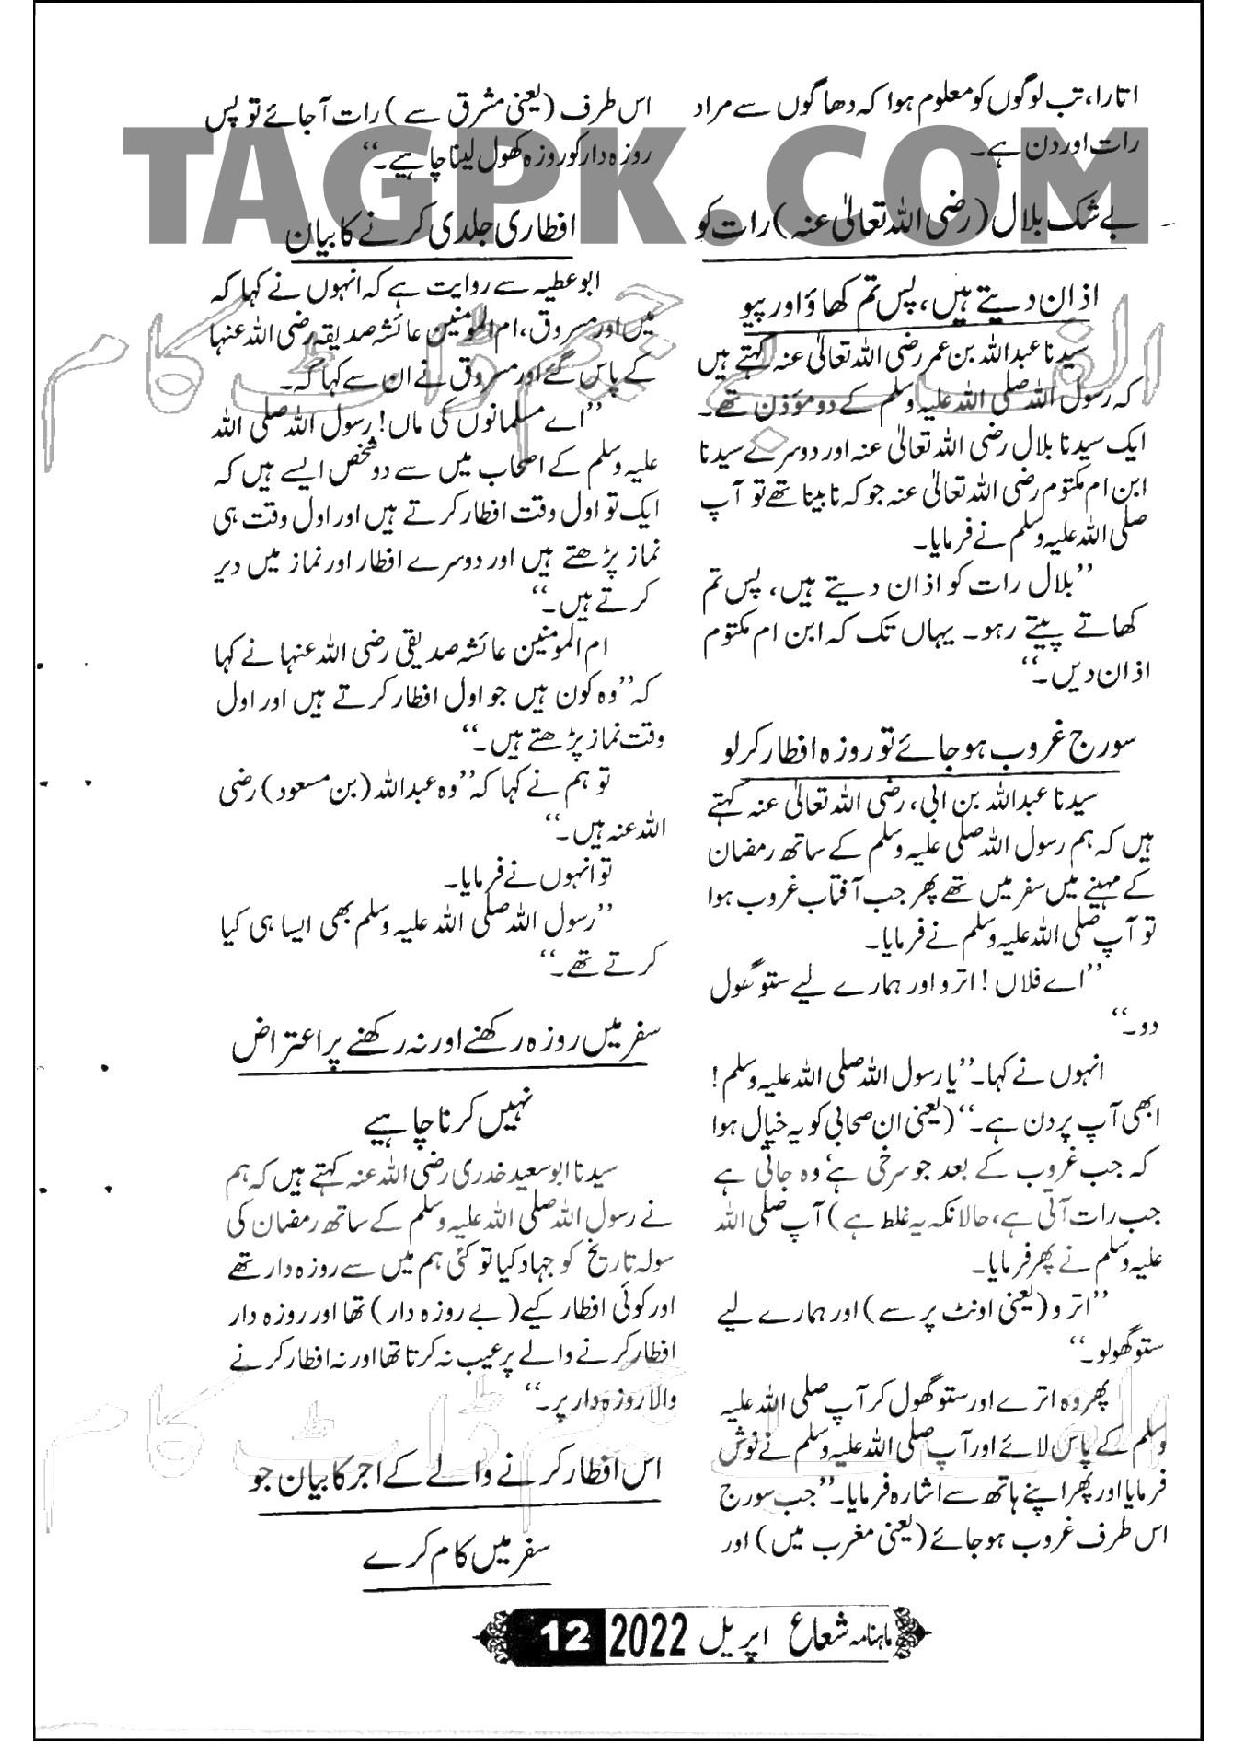 اتارا، تب لوگوں کو معلوم ہوا کہ دھاگوں سے مراد
رات اور دن ہے۔
بے شک بلال (رضی اللہ تعالیٰ عنہ) رات کو
اذان دیتے ہیں، پس تم کھاؤ اور پیو
سیدنا عبداللہ بن عمر رضی اللہ تعالیٰ عنہ کہتے ہیں
کہ رسول اللہ صلی اللہ علیہ وسلم کے دو مؤذن تھے۔
ایک سیدنا بلال رضی اللہ تعالیٰ عنہ اور دوسرے سیدنا
ابن ام مکتوم رضی اللہ تعالیٰ عنہ جو کہ نابینا تھے تو آپ
صلی اللہ علیہ وسلم نے فرمایا۔
”بلال رات کو اذان دیتے ہیں، پس تم
کھاتے پیتے رہو۔ یہاں تک کہ ابن ام مکتوم
اذان دیں۔“
سورج غروب ہو جائے تو روزہ افطار کرلو
سیدنا عبداللہ بن ابی، رضی اللہ تعالیٰ عنہ کہتے
ہیں کہ ہم رسول اللہ صلی علیہ وسلم کے ساتھ رمضان
کے مہینے میں سفر میں تھے پھر جب آفتاب غروب ہوا
تو آپ صلی اللہ علیہ وسلم نے فرمایا۔
”اے فلاں! اترو اور ہمارے لیے ستو گھول
دو۔“
انہوں نے کہا۔ ”یا رسول اللہ صلی اللہ علیہ وسلم!
ابھی آپ پر دن ہے۔“ (یعنی ان صحابی کو یہ خیال ہوا
کہ جب غروب کے بعد جو سرخی ہے وہ جاتی ہے
جب رات آتی ہے، حالانکہ یہ غلط ہے) آپ صلی اللہ
علیہ وسلم نے پھر فرمایا۔
”اترو (یعنی اونٹ پر سے) اور ہمارے لیے
ستو گھولو۔“
پھر وہ اترے اور ستو گھول کر آپ صلی اللہ علیہ
وسلم کے پاس لائے اور آپ صلی اللہ علیہ وسلم نے نوش
فرمایا اور پھر اپنے ہاتھ سے اشارہ فرمایا۔ ”جب سورج
اس طرف غروب ہو جائے (یعنی مغرب میں) اور
اس طرف (یعنی مشرق سے) رات آجائے تو پس
روزہ دار کو روزہ کھول لینا چاہیے۔“
افطاری جلدی کرنے کا بیان
ابو عطیہ سے روایت ہے کہ انہوں نے کہا کہ
میں اور مسروق، ام المومنین عائشہ صدیقہ رضی اللہ عنہا
کے پاس گئے اور مسروق نے ان سے کہا کہ۔
”اے مسلمانوں کی ماں! رسول اللہ صلی اللہ
علیہ وسلم کے اصحاب میں سے دو شخص ایسے ہیں کہ
ایک تو اول وقت افطار کرتے ہیں اور اول وقت ہی
نماز پڑھتے ہیں اور دوسرے افطار اور نماز میں دیر
کرتے ہیں۔“
ام المومنین عائشہ صدیقی رضی اللہ عنہا نے کہا
کہ ”وہ کون ہیں جو اول افطار کرتے ہیں اور اول
وقت نماز پڑھتے ہیں۔“
تو ہم نے کہا کہ ”وہ عبداللہ (بن مسعود) رضی
اللہ عنہ ہیں۔“
تو انہوں نے فرمایا۔
”رسول اللہ صلی اللہ علیہ وسلم بھی ایسا ہی کیا
کرتے تھے۔“
سفر میں روزہ رکھنے اور نہ رکھنے پر اعتراض
نہیں کرنا چاہیے
سیدنا ابو سعید خدری رضی اللہ عنہ کہتے ہیں کہ ہم
نے رسول اللہ صلی اللہ علیہ وسلم کے ساتھ رمضان کی
سولہ تاریخ کو جہاد کیا تو کئی ہم میں سے روزہ دار تھے
اور کوئی افطار کیے (بے روزہ دار) تھا اور روزہ دار
افطار کرنے والے پر عیب نہ کرتا تھا اور نہ افطار کرنے
والا روزہ دار پر۔“
اس افطار کرنے والے کے اجر کا بیان جو
سفر میں کام کرے
ماہنامہ شعاع اپریل 2022 12
TAGPK.COM